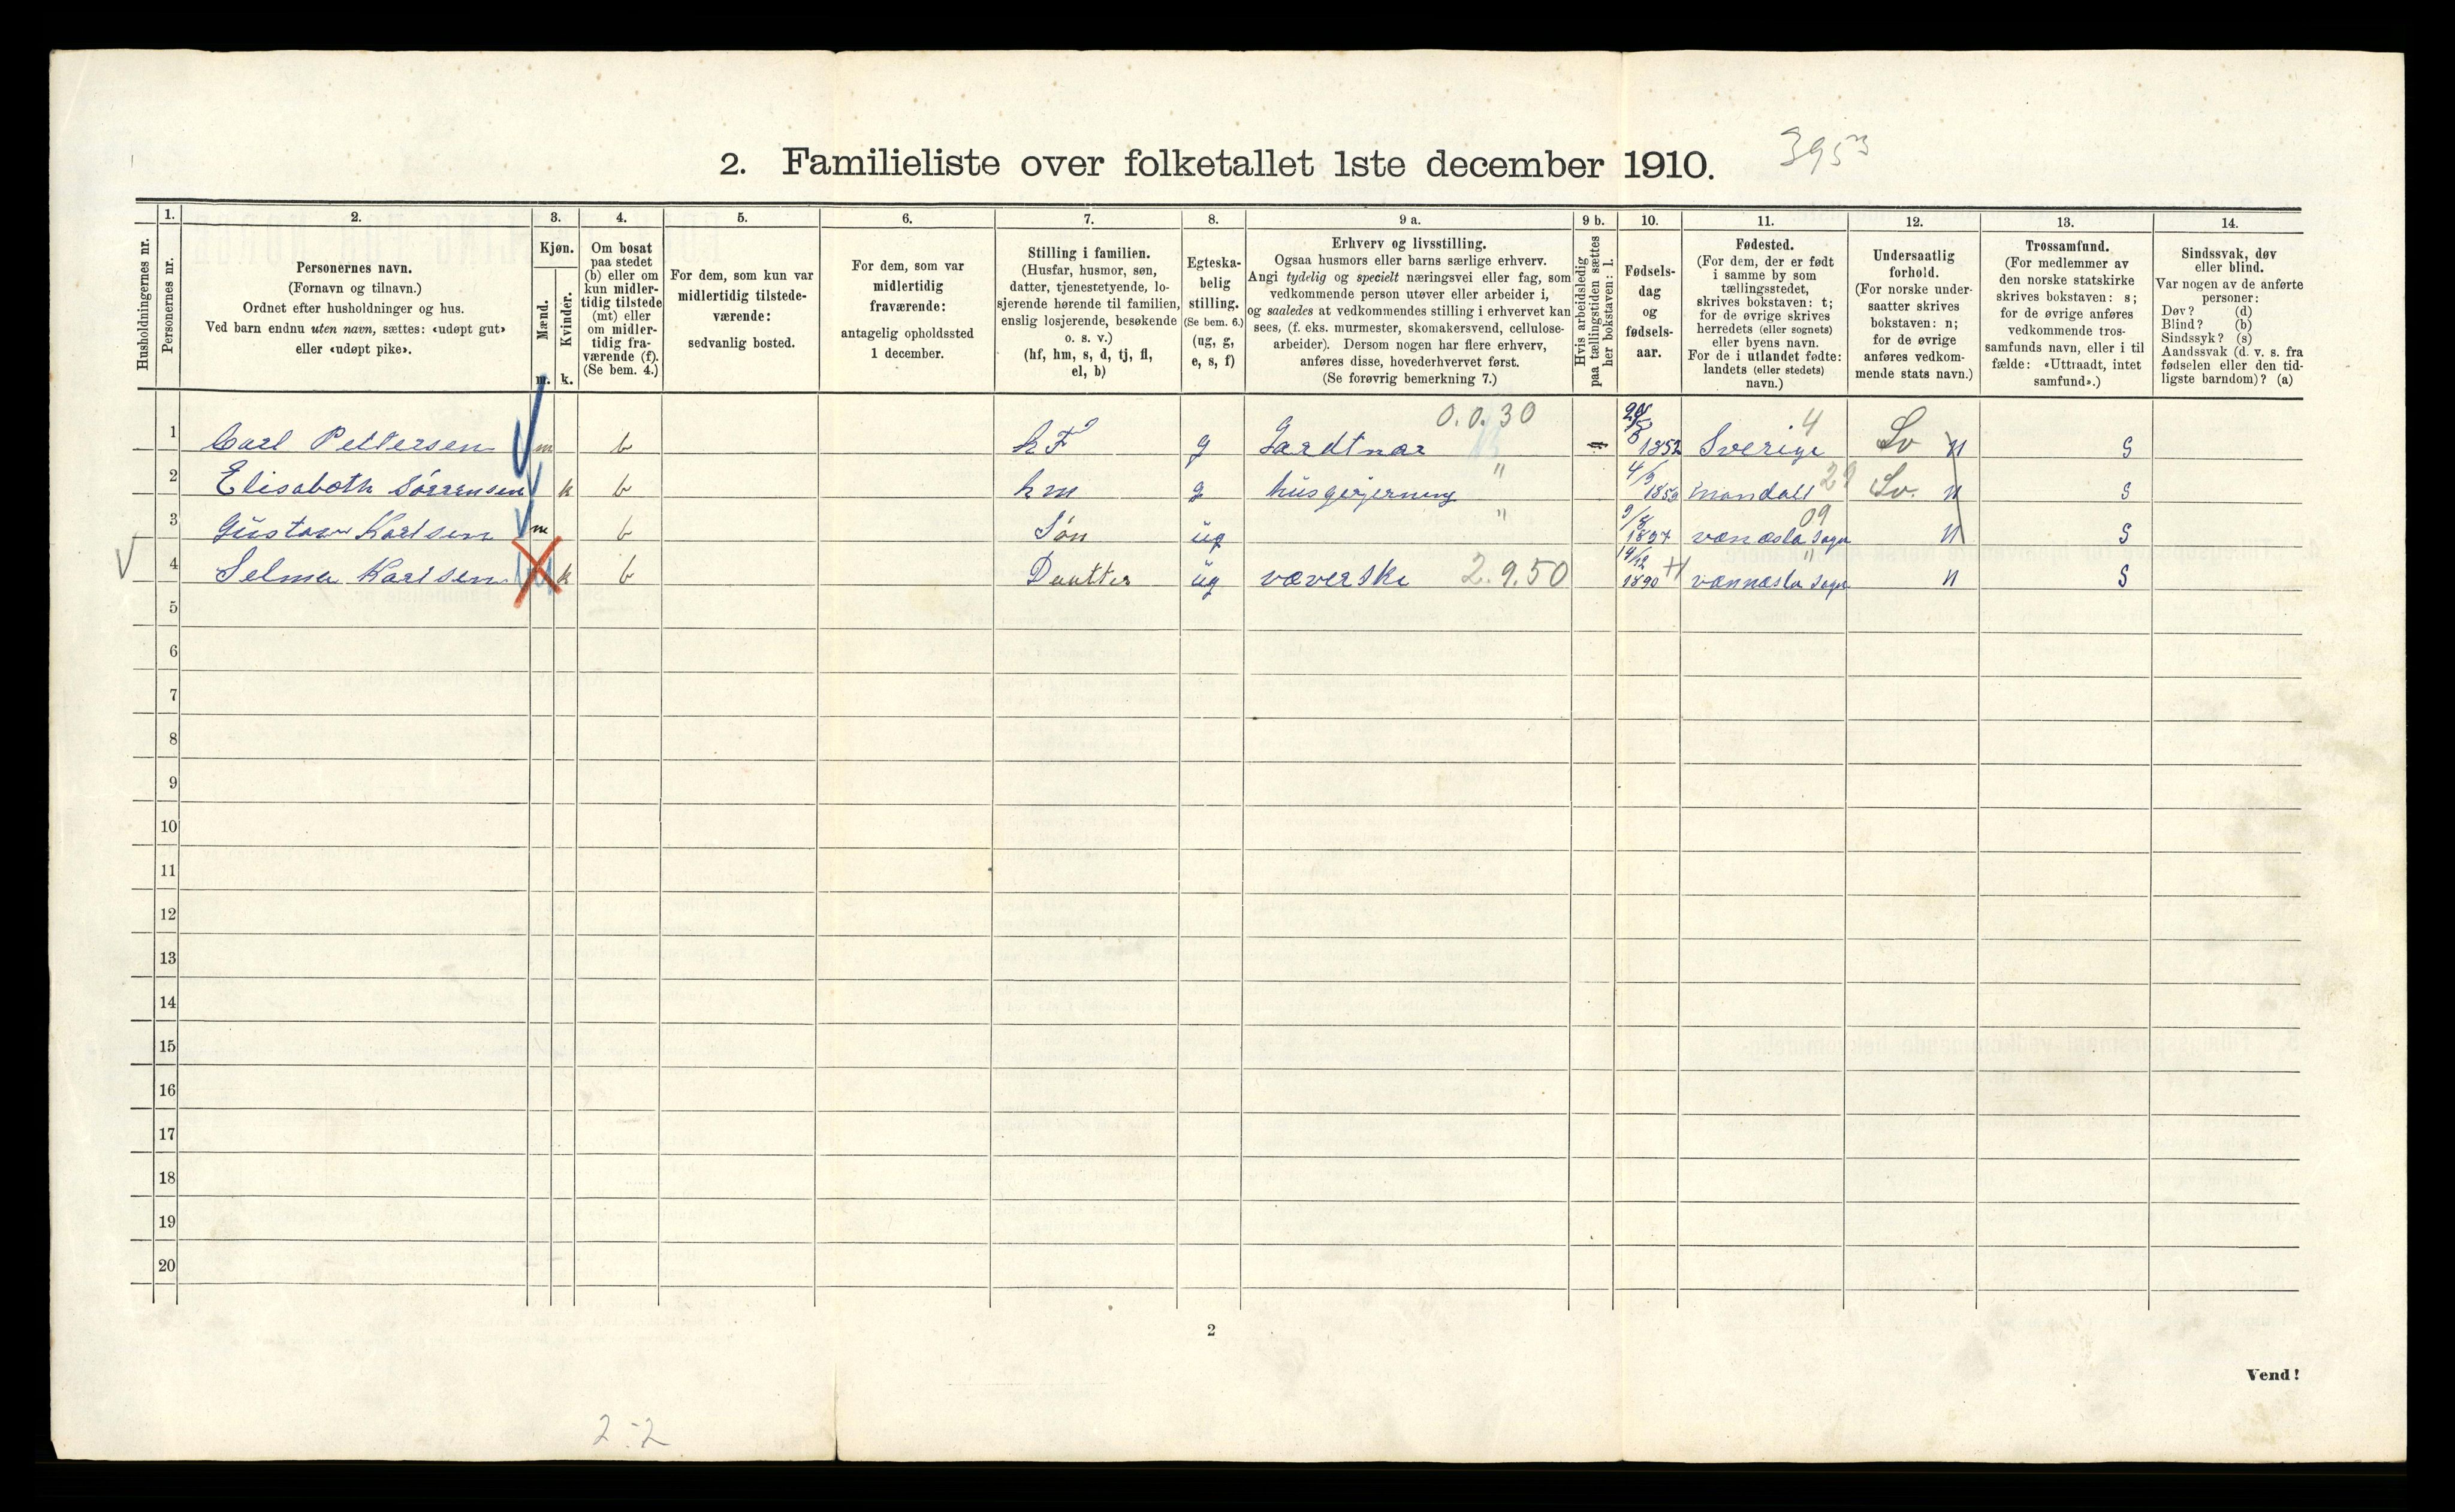 2. Familieliste over folketallet 1ste december 1910.
395
Husholdningernes nr.
1.
Personernes nr.
2.
Personernes navn.
(Fornavn og tilnavn.)
Ordnet efter husholdninger og hus.
Ved barn endnu uten navn, sættes: «udøpt gut»
eller «udøpt pike».
3.
Kjøn.
Mænd.
Kvinder.
m.
k.
4.
Om bosat
paa stedet
(b) eller om
kun midler-
tidig tilstede
(mt) eller
om midler-
tidig fra-
værende (f).
(Se bem. 4.)
5.
For dem, som kun var
midlertidig tilstede-
værende:
sedvanlig bosted.
6.
For dem, som var
midlertidig
fraværende:
antagelig opholdssted
1 december.
7.
Stilling i familien.
(Husfar, husmor, søn,
datter, tjenestetyende, lo-
sjerende hørende til familien,
enslig losjerende, besøkende
o. s. v.)
(hf, hm, s, d, tj, fl,
el, b)
8.
Egteska-
belig
stilling.
(Se bem. 6.)
(ug, g,
e, s, f)
9 a.
Erhverv og livsstilling.
Ogsaa husmors eller barns særlige erhverv.
Angi tydelig og specielt næringsvei eller fag, som
vedkommende person utøver eller arbeider i,
og saaledes at vedkommendes stilling i erhvervet kan
sees, (f. eks. murmester, skomakersvend, cellulose-
arbeider). Dersom nogen har flere erhverv,
anføres disse, hovederhvervet først.
(Se forøvrig bemerkning 7.)
9 b.
Hvis arbeidsledig
paa tællingstiden sættes
her bokstaven: l.
10.
Fødsels-
dag
og
fødsels-
aar.
11.
Fødested.
(For dem, der er født
i samme by som
tællingsstedet,
skrives bokstaven: t;
for de øvrige skrives
herredets (eller sognets)
eller byens navn.
For de i utlandet fødte:
landets (eller stedets)
navn.)
12.
Undersaatlig
forhold.
(For norske under-
saatter skrives
bokstaven: n;
for de øvrige
anføres vedkom-
mende stats navn.)
13.
Trossamfund.
(For medlemmer av
den norske statskirke
skrives bokstaven: s;
for de øvrige anføres
vedkommende tros-
samfunds navn, eller i til
fælde: «Uttraadt, intet
samfund».)
14.
Sindssvak, døv
eller blind.
Var nogen av de anførte
personer:
Døv? (d)
Blind? (b)
Sindssyk? (s)
Aandssvak (d. v. s. fra
fødselen eller den tid-
ligste barndom)? (a)
1 Carl Pettersen m b hF g Gardtnar 0.0.30 1852 Sverige 4 Sv n S
2 Elisabeth Sørrensen k b hm g husgerjerning " 4/9 mandall Sv. n S
3 Gustav Karlsen m b Søn ug " 9/8 1897 vænæsla Sogn 09 n S
4 Selma Karlsen k b Dautter ug væverske 2.9.50 14/12 1890 vænnæsla Sogn " n S
5
6
7
8
9
10
11
12
13
14
15
16
17
18
19
20
2
Vend!
2-2